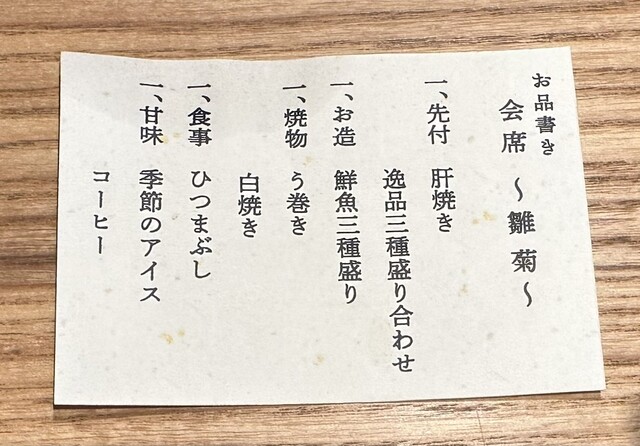 お品書き
会席 〜雛菊〜
一、先付 肝焼き
逸品三種盛り合わせ
一、お造 鮮魚三種盛り
一、焼物 う巻き
白焼き
一、食事 ひつまぶし
一、甘味 季節のアイス
コーヒー